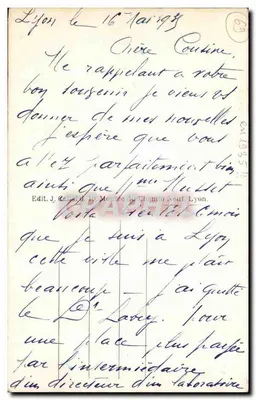 Lyon le 16 Mai 1935
69
Chère Cousine,
Me rappelant à votre
bon souvenir je viens vs
donner de mes nouvelles
j'espère que vous
allez parfaitement bien
ainsi que Mme Musset
Edit. J. Lyon.
Voilà 6 mois
que je suis à Lyon
cette ville me plaît
beaucoup — j'ai quitté
le Dr Pour
une place plus payée
par l'intermédiaire
d'un directeur d'un laboratoire